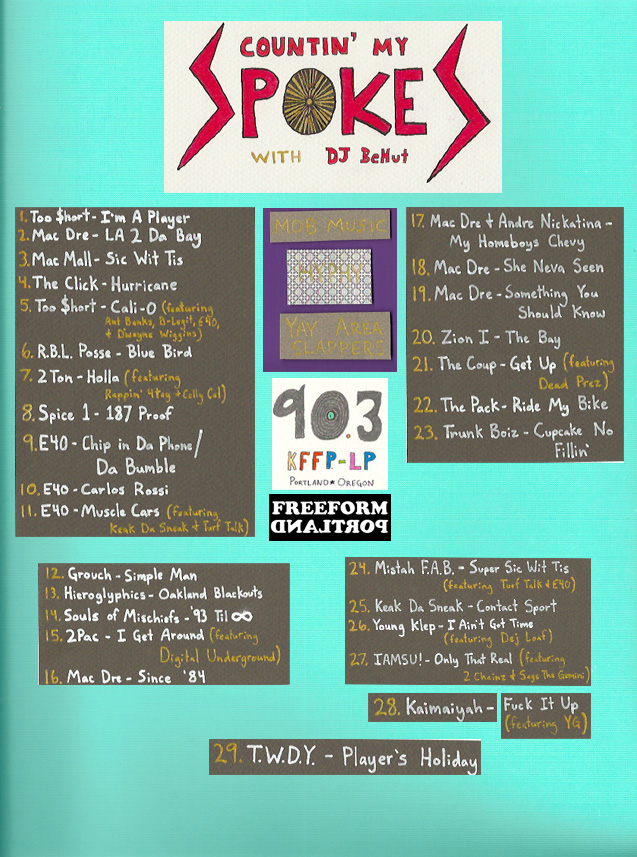 COUNTIN' MY
SPOKES
WITH DJ BeNut
1. Too $hort - I'm A Player
2. Mac Dre - LA 2 Da Bay
3. Mac Mall - Sic Wit Tis
4. The Click - Hurricane
5. Too $hort - Cali-O (featuring
Ant Banks, B-Legit, E40,
& Dwayne Wiggins)
6. R.B.L. Posse - Blue Bird
7. 2 Ton - Holla (featuring
Rappin' 4tay & Celly Cel)
8. Spice 1 - 187 Proof
9. E40 - Chip in Da Phone/
Da Bumble
10. E40 - Carlos Rossi
11. E40 - Muscle Cars (featuring
Keak Da Sneak & Turf Talk)
MOB MUSIC
HYPHY
YAY AREA
SLAPPERS
90.3
KFFP-LP
PORTLAND★OREGON
FREEFORM
PORTLAND
17. Mac Dre & Andre Nickatina -
My Homeboys Chevy
18. Mac Dre - She Neva Seen
19. Mac Dre - Something You
Should Know
20. Zion I - The Bay
21. The Coup - Get Up (featuring
Dead Prez)
22. The Pack - Ride My Bike
23. Trunk Boiz - Cupcake No
Fillin'
12. Grouch - Simple Man
13. Hieroglyphics - Oakland Blackouts
14. Souls of Mischiefs - '93 Til ∞
15. 2Pac - I Get Around (featuring
Digital Underground)
16. Mac Dre - Since '84
24. Mistah F.A.B. - Super Sic Wit Tis
(featuring Turf Talk & E40)
25. Keak Da Sneak - Contact Sport
26. Young Klep - I Ain't Got Time
(featuring Dej Loaf)
27. IAMSU! - Only That Real (featuring
2 Chainz & Sage The Gemini)
28. Kaimaiyah - Fuck It Up
(featuring YG)
29. T.W.D.Y. - Player's Holiday